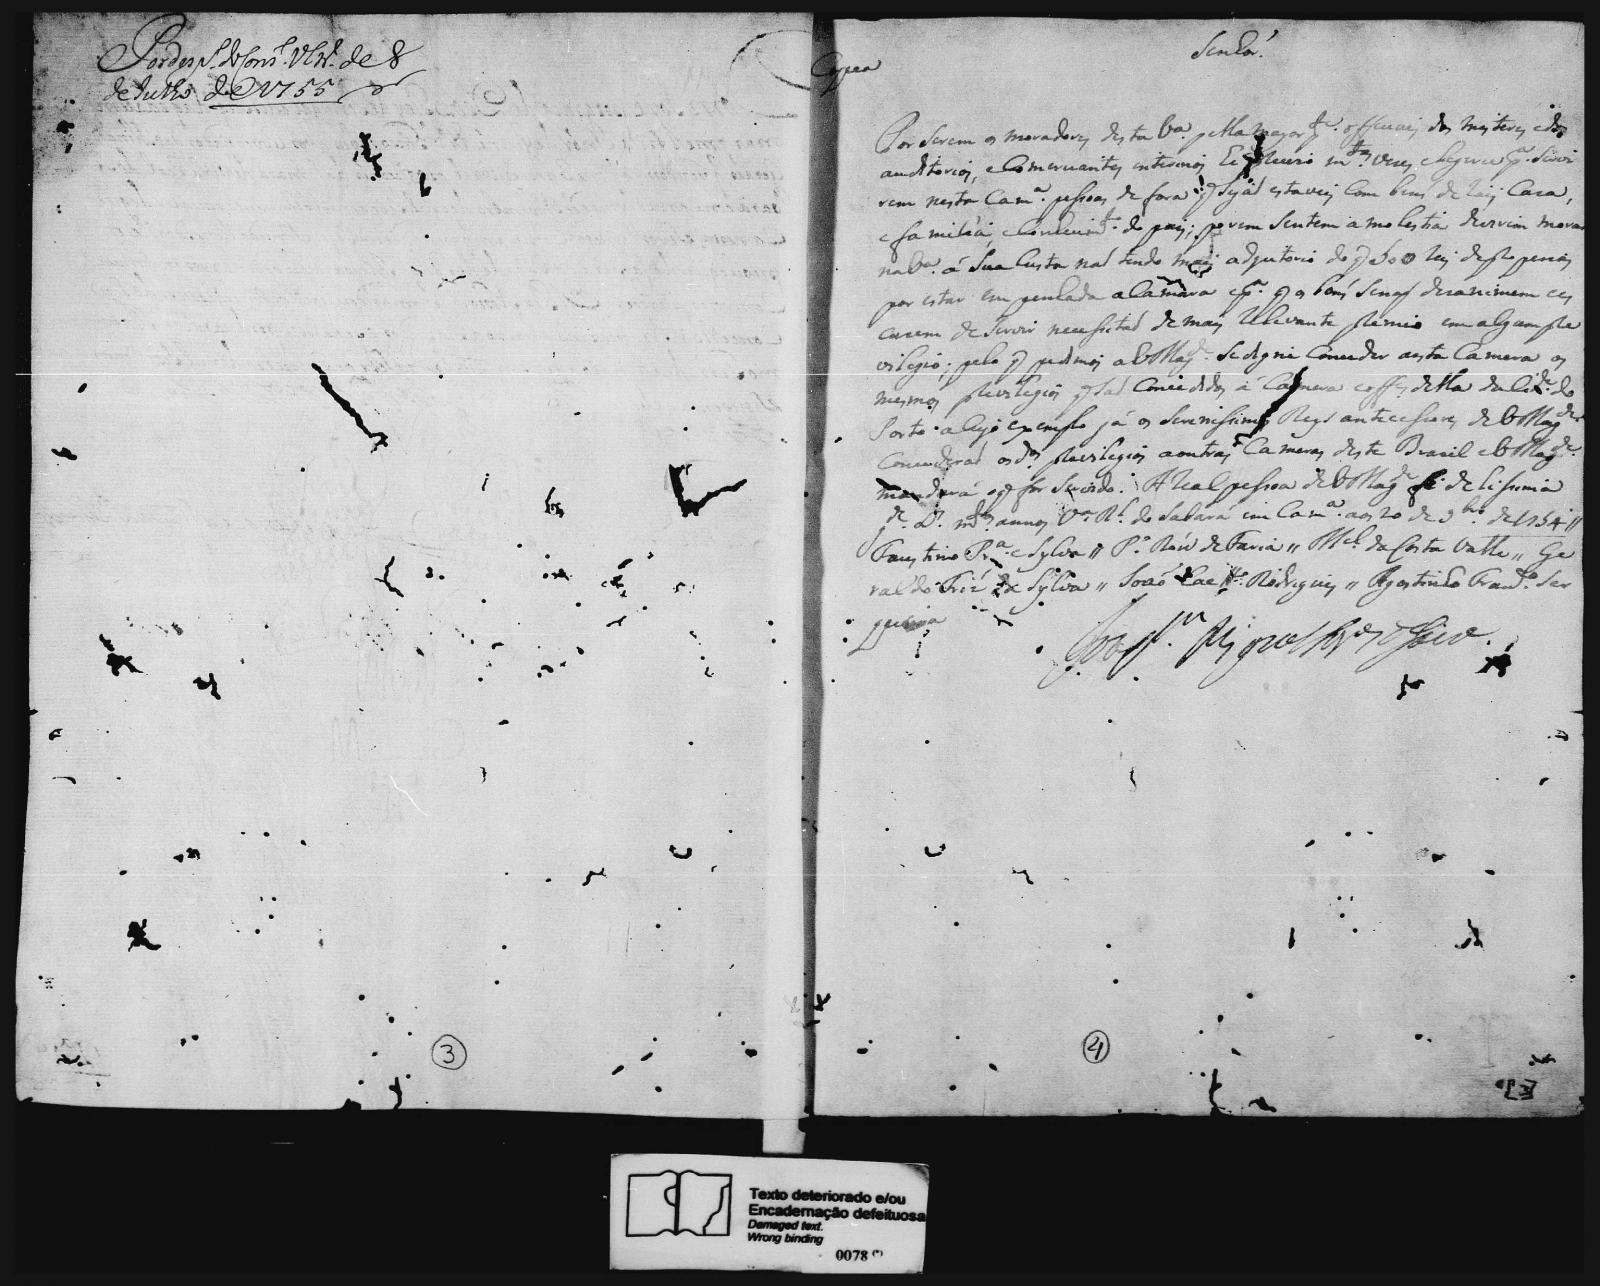 Por desp.º do Cons.º Ultr.º de 8
de Julho de 1755
Copea
Senhor.
Por serem os moradores desta V.ª pella mayor p.te officiais dos misteres e dos
auditorios, e Comerciantes m.tas vezes eleger p.ª Servi
rem nesta Cam.ª pessoas de fora q̃ sejaõ estaveis Com bens de raiz Caza,
e familia, e Conhecim.to do paiz; porem Sentem a molestia de virem morar
na V.ª á Sua Custa naõ tendo mais adjutorio do q̃ reis de propinas
por estar empenhada a Camara e p.ª q̃ os bons se naõ desanimem
de Servir necessitaõ de mais relevante premio em algum pre
vilegio; pelo q̃ pedimos a V Mag.de Se digne Conceder a esta Camera os
mesmos previlegios q̃ saõ Concedidos á Camera e off.es della da Cid.e do
Porto a Cujo exemplo já os Serenissimos Reys antecessores de V Mag.de
Concederaõ os d.os previlegios a outras Cameras deste Brazil e V Mag.de
mandará o q̃ for Servido. A Real pessoa de V Mag.de fidelissima
g.de D.s m.s annos V.ª R.l do Sabará em Cam.ª aos 20 de 9br.o de 1754 //
Faustino Pr.ª e Sylva // P.º Roiz de Faria // M.el da Costa Valle // Ge
raldo da Sylva // Joaõ Rodrigues // Agostinho Fran.co Ser
queira
3
4
Texto deteriorado e/ou
Encadernação defeituosa
Damaged text.
Wrong binding
0078 (*)